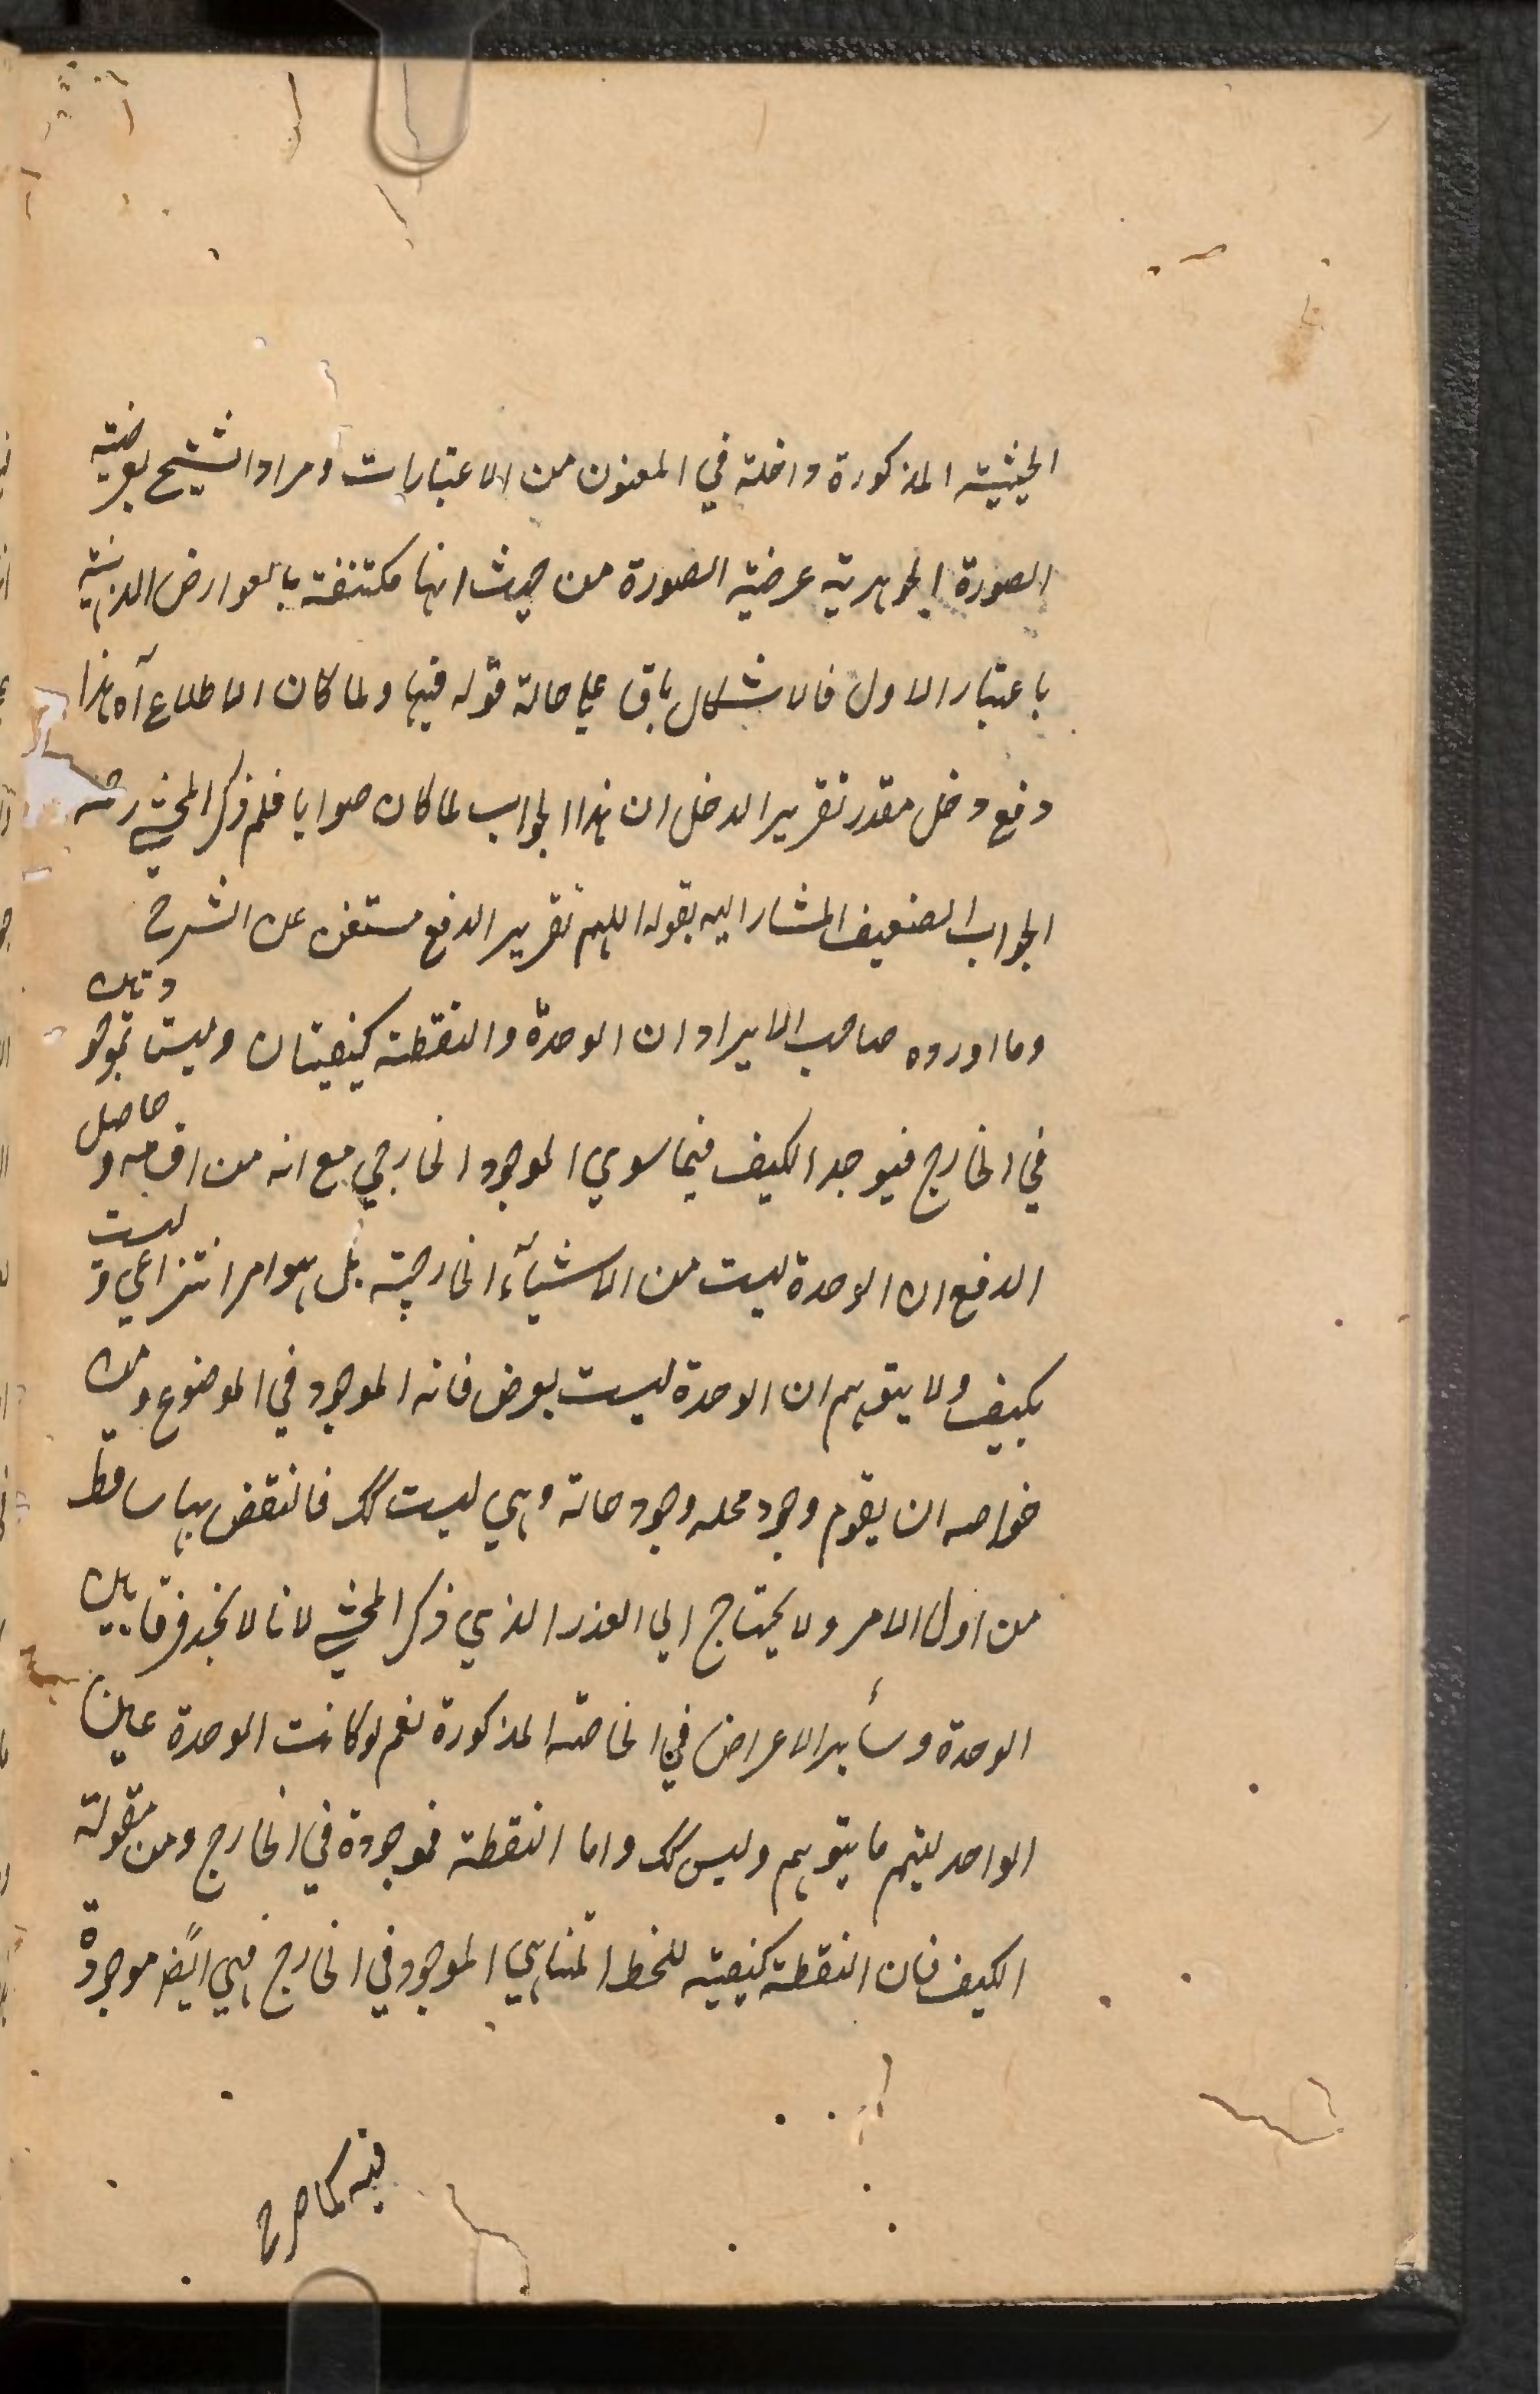 الحيثية المذكورة داخلة في المعنون من الاعتبارات ومراد الشيخ بعرضية
الصورة الجوهرية عرضية الصورة من حيث انها مكتنفة بالعوارض الذهنية
باعتبار الاول فالاشكال باق علي حالة قوله فيها ولما كان الاطلاع آه هذا
دفع دخل مقدر تقرير الدخل ان هذا الجواب لما كان صوابا فلم ذكر المحشي رحمه
الجواب الضعيف المشار اليه بقوله اللهم تقرير الدفع مستغن عن الشرح
وما اورده صاحب الايراد ان الوحدة والنقطة كيفيتان وليستا بموجو دتان
في الخارج فيوجد الكيف فيما سوي الموجود الخارجي مع انه من اقسامه و حاصل
الدفع ان الوحدة ليست من الاشيآء الخارجية بل هو امر انتزاعي و ليست
بكيف ولا يتوهم ان الوحدة ليست بعرض فانه الموجود في الموضوع ومن
خواصه ان يقوم وجود محله وجود حاله وهي ليست كك فالنقض بها ساقط
من اول الامر ولا يحتاج الي العذر الذي ذكر المحشي لانا لا نجد فرقا بين
الوحدة وسأير الاعراض في الخاصة المذكورة نعم لو كانت الوحدة عين
الواحد ليتم ما يتوهم وليس كك واما النقطة فموجودة في الخارج ومن مقولة
الكيف فان النقطة كيفية للخط المتناهي الموجود في الخارج فهي ايضا موجودة
فيه كما صرح